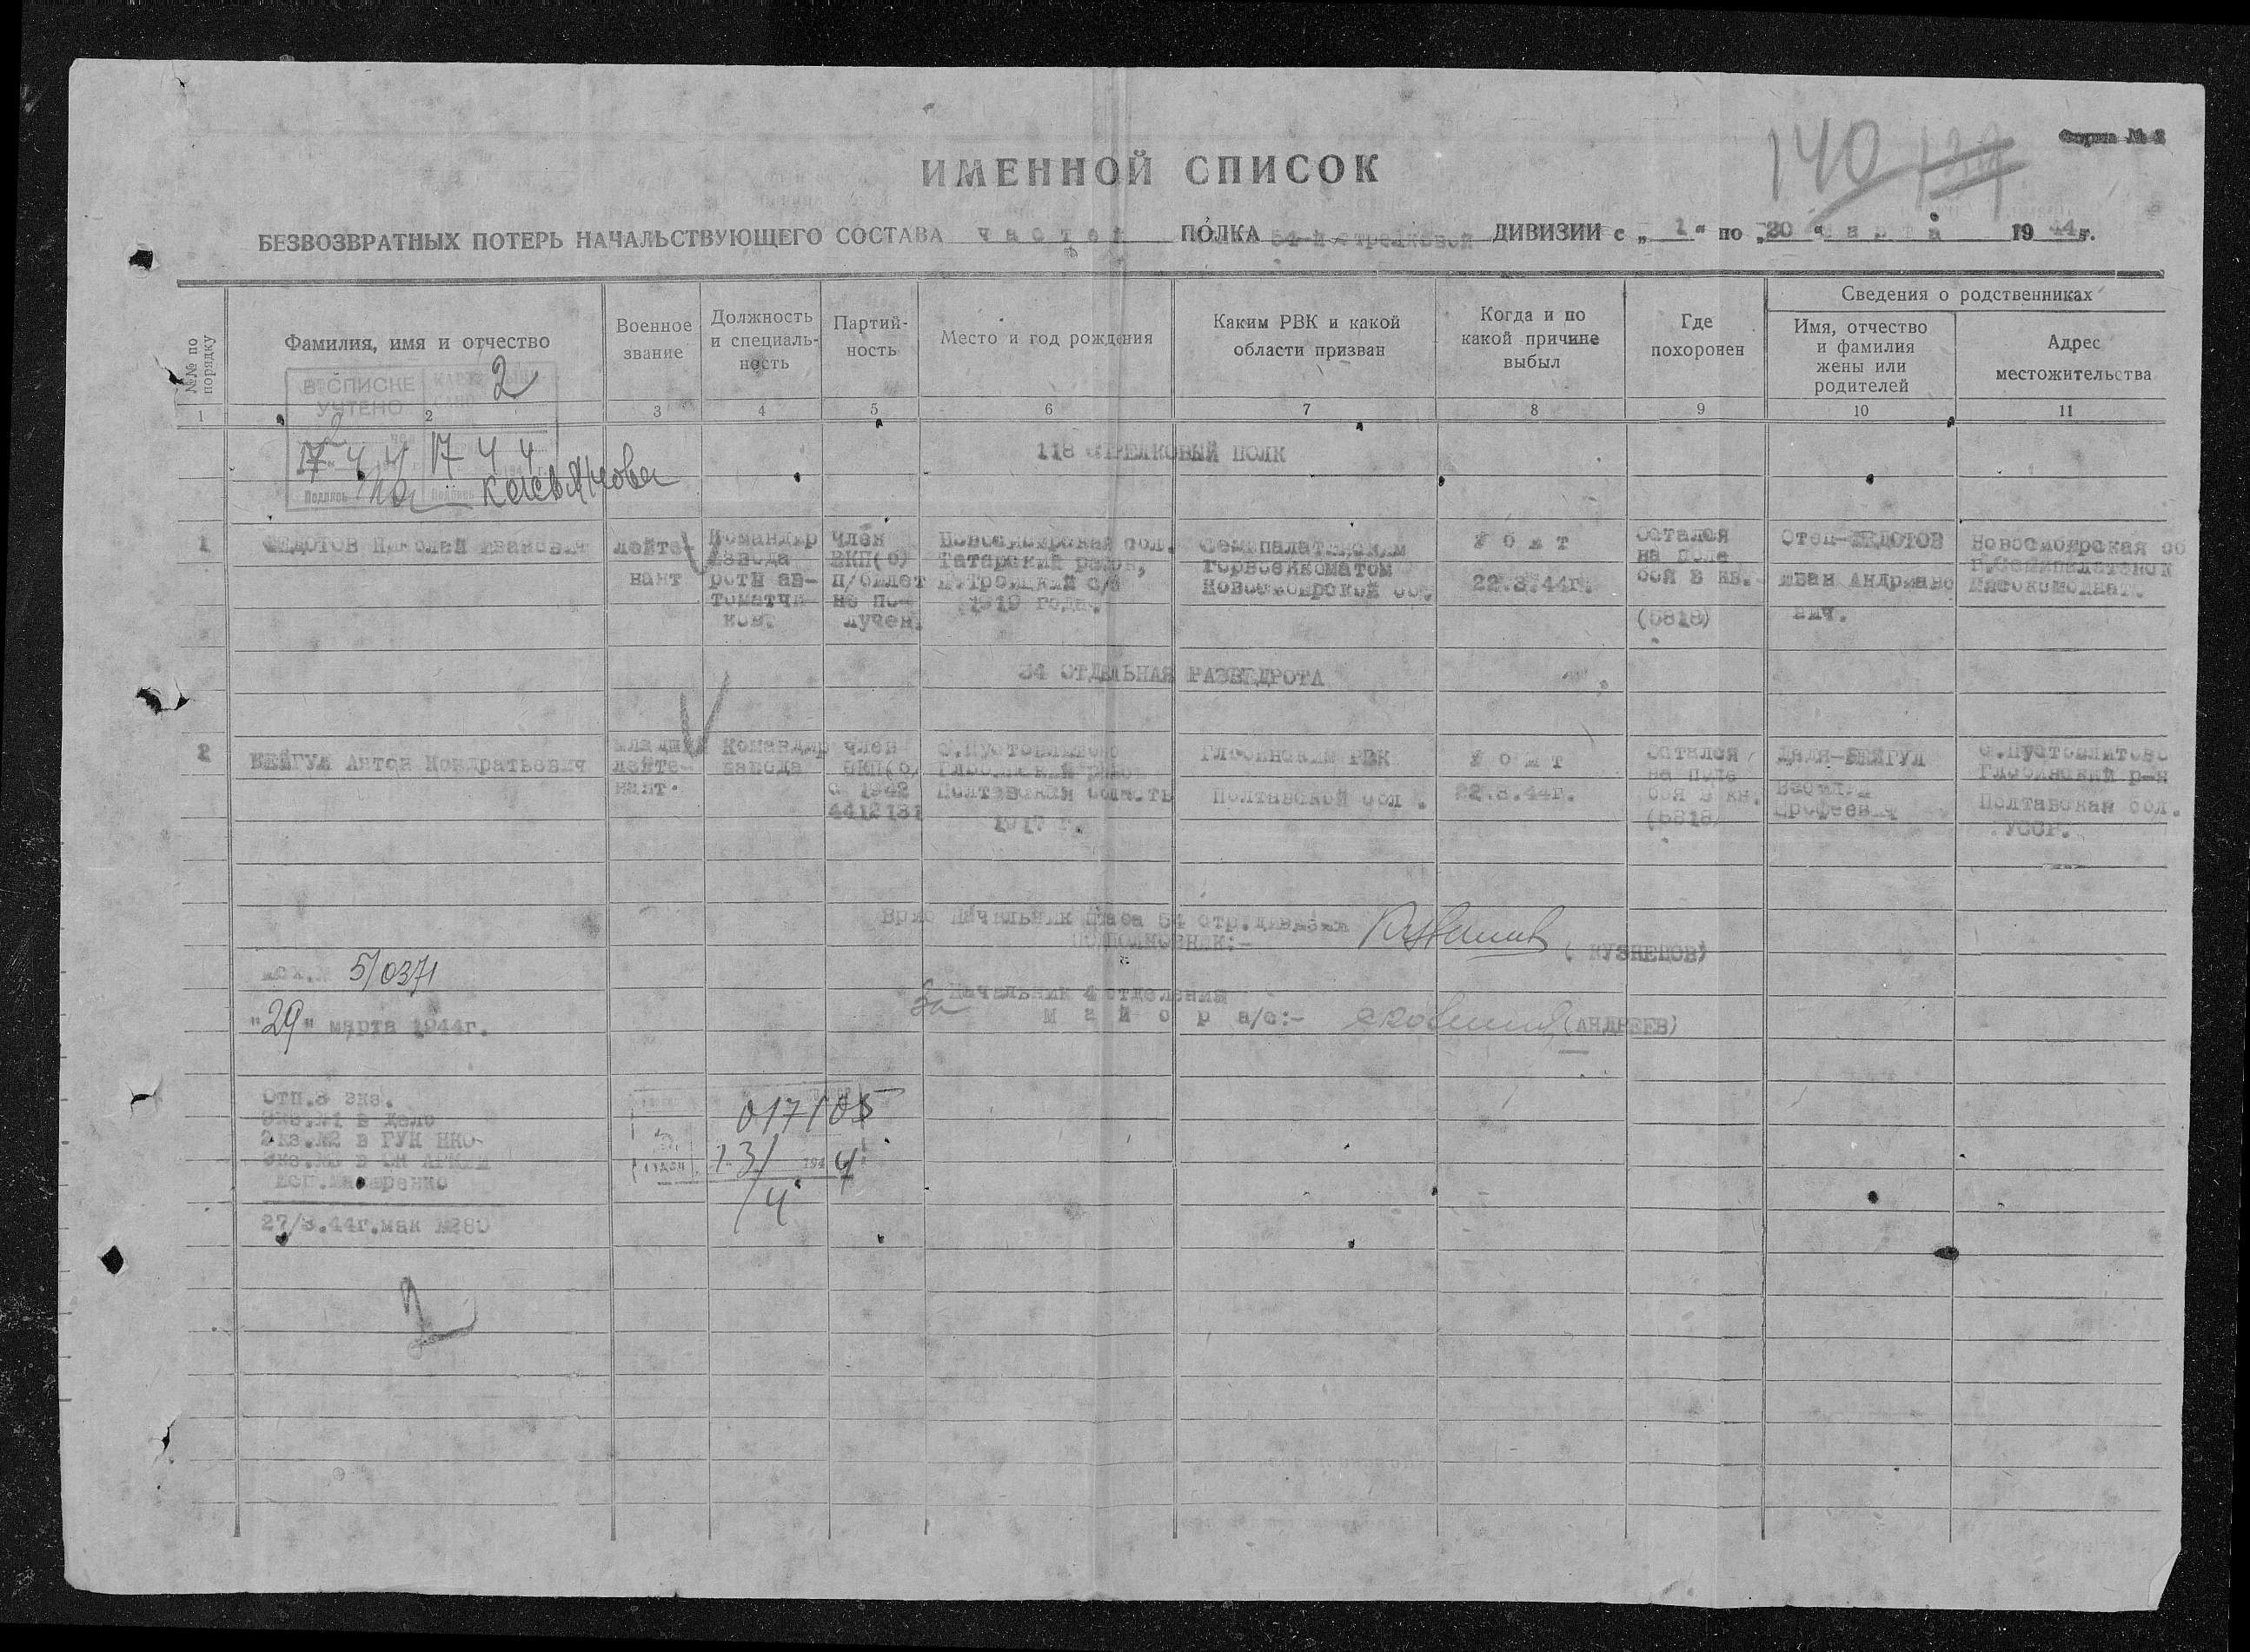 140 139
Форма № 2
ИМЕННОЙ СПИСОК
БЕЗВОЗВРАТНЫХ ПОТЕРЬ НАЧАЛЬСТВУЮЩЕГО СОСТАВА частей ПОЛКА 54-й стрелковой ДИВИЗИИ с „ 1 “ по „ 20 “ марта 19 44 г.
№№ по порядку
Фамилия, имя и отчество
Военное звание
Должность и специаль-
ность
Партий-
ность
Место и год рождения
Каким РВК и какой
области призван
Когда и по
какой причине
выбыл
Где
похоронен
Сведения о родственниках
Имя, отчество
и фамилия
жены или
родителей
Адрес
местожительства
2
В СПИСКЕ
УЧТЕНО
1 2 3 4 5 6 7 8 9 10 11
2
17 4 44 17 4 44
Подпись Подпись
118 СТРЕЛКОВЫЙ ПОЛК
1
ФЕДОТОВ Николай Иванович
лейте-
нант
Командир
взвода
роты ав-
томатчи-
ков.
член
ВКП(б)
п/билет
не по-
лучен.
Новосибирская обл.
Татарский район,
с/с
1919 года.
Семипалатинским
горвоенкоматом
Новосибирской об.
Убит
22.3.44г.
Остался
на поле
боя в кв.
(5818)
Отец-ФЕДОТОВ
Иван Андриано
вич.
Новосибирская об
г.Семипалатинск
Мясокомбинат.
34 ОТДЕЛЬНАЯ РАЗВЕДРОТА
2
Антон Кондратьевич
младш.
лейте-
нант.
Командир
взвода
член
ВКП(б)
с 1942
4412131
Глобинский район
Полтавская область
1917 г.
Глобинским РВК
Полтавской обл.
Убит
22.3.44г.
Остался
на поле
боя в кв.
(5818)
Дядя-
Василий
Ерофеевич
Глобинский р-н
Полтавская обл.
УССР.
Врио Начальник Штаба 54 стр.дивизии
Подполковник:- (КУЗНЕЦОВ)
Исх.№ 5/0371
За Начальник 4 отделения
Майор а/с:- (АНДРЕЕВ)
"29" марта 1944г.
Отп.3 экз.
Экз.№1 в дело
Экз.№2 в ГУК НКО
Экз.№3 в ОК АРМИИ
исп.Макаренко
27/3.44г.маш №280
017105
13/4 1944
2